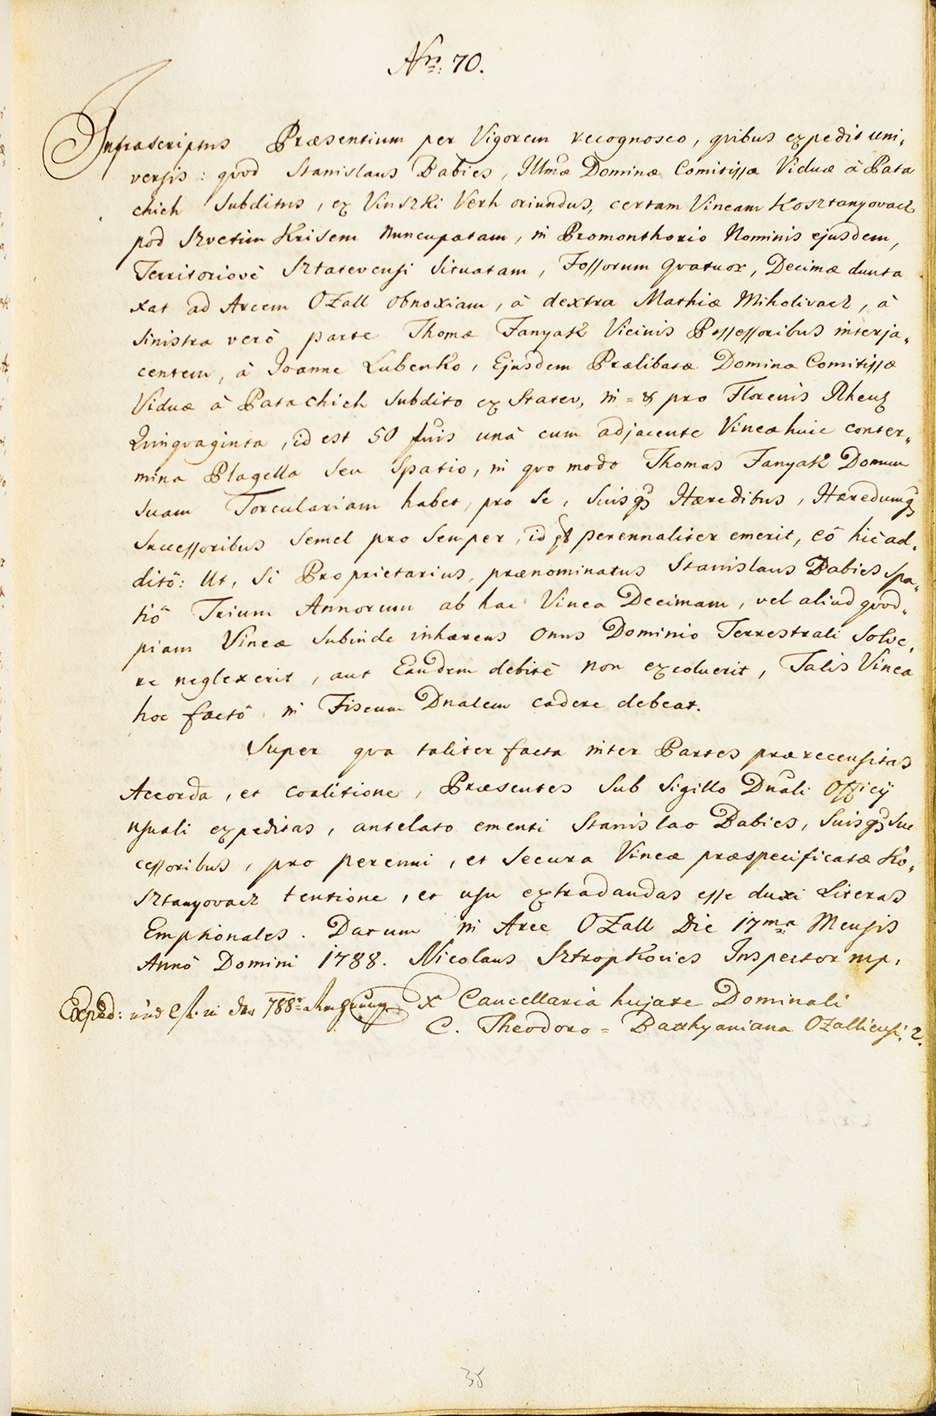 Nro: 70.
Infrascriptus Præsentium per Vigorem recognosco, quibus expedit uni,
versis: quod Stanislaus Babics, Illmæ Dominæ Comitissæ Viduæ à Pata
chich Subditus, ex Vinszki Verh oriundus, certam Vineam Kosztanyovacz
pod Szvetim Krisem nuncupatam, in Promonthorio Nominis ejusdem,
Territoriovè Sztatevensi Situatam, Fossorum quatuor, Decimæ dunta
xat ad Arcem Ozall obnoxiam, à dextra Mathiæ Miholivacz, à
Sinistra verò parte Thomæ Fanyak Vicinis Possessoribus interja,
centem, à Joanne Lubenko, Ejusdem Prælibatæ Domina Comitissæ
Viduæ à Patachich Subdito ex Statev, in = & pro Florenis Rhens
Quinquaginta, id est 50 fnis unà cum adjacente Vineæ huic conter,
mina Plagella seu Spatio, in quo modo Thomas Fanyak Domum
Suam Torculariam habet, pro se, Suisq3 Hæredibus, Hæredumq3
Successoribus Semel pro Semper, id perennaliter emerit, eô hic ad,
ditô: Ut, Si Proprietarius, prænominatus Stanislaus Babics Spa,
tiô Trium Annorum ab hac Vinea Decimam, vel aliud quod,
piam Vineæ Subinde inhærens onus Dominio Terrestrali Solve,
re neglexerit, aut Eandem debitè non excoluerit, Talis Vinea
hoc factô in Fiscum Dnalem cadere debeat.
Super qua taliter facta inter Partes prærecensitas
Accorda, et coalitione, Præsentes Sub Sigillo Dnali Officij
usuali expeditas, antelato ementi Stanislao Babics, Suisq3 Suc
cessoribus, pro perenni, et Secura Vineæ præspecificatæ Ko,
sztanyovacz tentione, et usu extradandas esse duxi Literas
Emptionales. Datum in Arce Ozall Die 17ma Mensis
Annô Domini 1788. Nicolaus Sztropkovics Inspector mp.
Exped: 788r X Cancellaria hujate Dominali
C. Theodoro = Batthyaniana Ozalliensi.
38